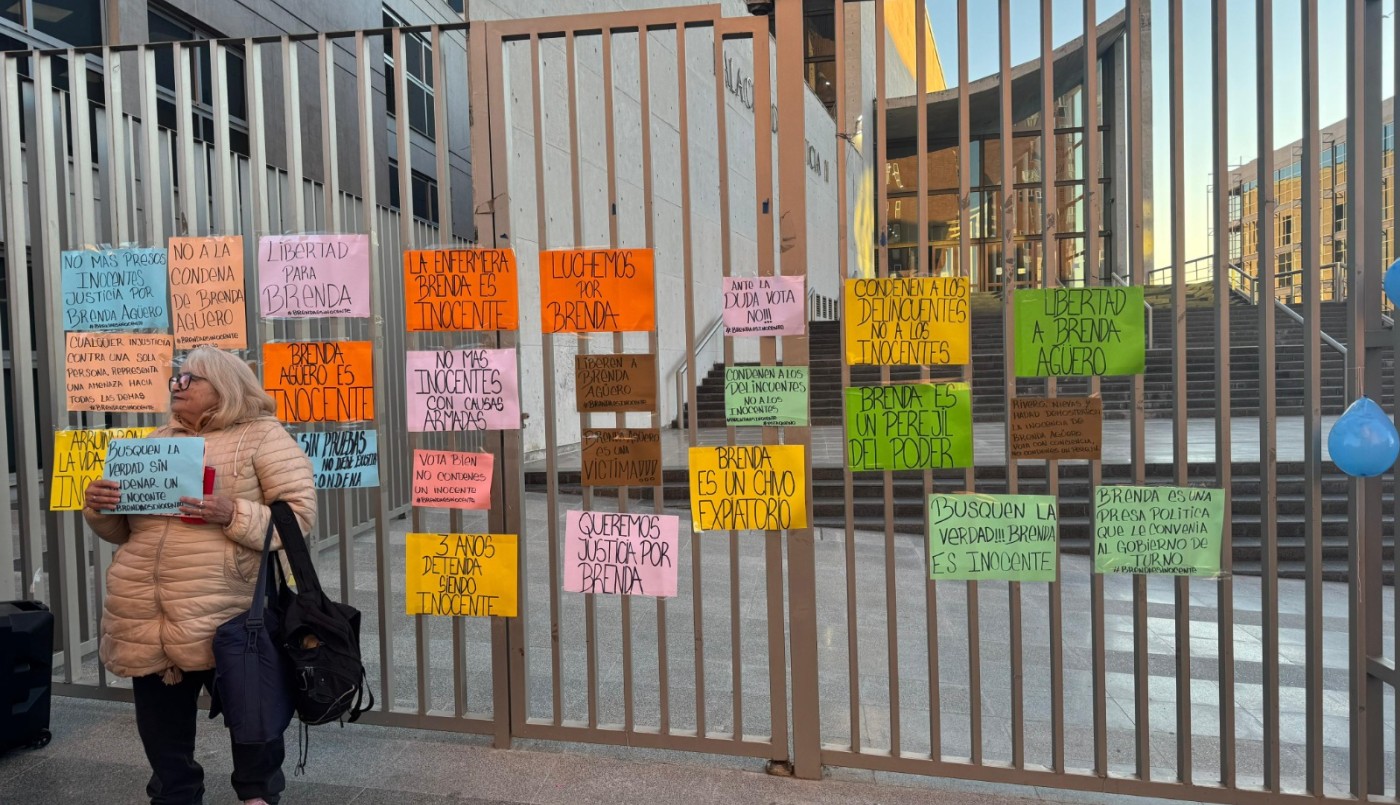 PALAC
CIA II
NO MAS PRESOS
INOCENTES
JUSTICIA POR
BRENDA AGÜERO
#BRENDAESINOCENTE
NO A LA
CONDENA
DE BRENDA
AGÜERO
LIBERTAD
PARA
BRENDA
#BRENDAESINOCENTE
LA ENFERMERA
BRENDA ES
INOCENTE
LUCHEMOS
POR
BRENDA
ANTE LA
DUDA VOTA
NO!!!
#BRENDAESINOCENTE
CONDENEN A LOS
DELINCUENTES
NO A LOS
INOCENTES
LIBERTAD
A BRENDA
AGÜERO
CUALQUIER INJUSTICIA
CONTRA UNA SOLA
PERSONA, REPRESENTA
UNA AMENAZA HACIA
TODAS LAS DEMAS
#BRENDAESINOCENTE
BRENDA
AGÜERO ES
INOCENTE
NO MAS
INOCENTES
CON CAUSAS
ARMADAS
LIBEREN A
BRENDA
AGÜERO
#BRENDAESINOCENTE
CONDENEN A LOS
DELINCUENTES
NO A LOS
INOCENTES
#BRENDAESINOCENTE
BRENDA ES
UN PEREJIL
DEL PODER
LA INOCENCIA DE
BRENDA AGÜERO
VOTA CON CONCIENCIA
ARRUINARON
LA VIDA
INO
BUSQUEN LA
VERDAD SIN
INOCENTE
#BRENDAESINOCENTE
SIN PRUEBAS
NO DEBE EXISTIR
CONDENA
VOTA BIEN
NO CONDENES
UN INOCENTE
#BRENDAESINOCENTE
BRENDA AGÜERO
ES UNA
VÍCTIMA!!!
BRENDA
ES UN CHIVO
EXPIATORIO
3 AÑOS
DETENIDA
SIENDO
INOCENTE
QUEREMOS
JUSTICIA POR
BRENDA
BUSQUEN LA
VERDAD!!! BRENDA
ES INOCENTE
BRENDA ES UNA
PRESA POLITICA
QUE LE CONVENIA
AL GOBIERNO DE
TURNO
#BRENDAESINOCENTE